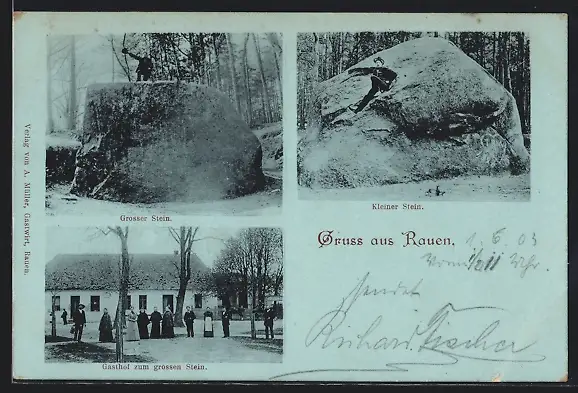 Verlag von A. Müller, Gastwirt, Rauen.
Grosser Stein.
Kleiner Stein.
Gruss aus Rauen.
1. 6. 03
Vorm. 1/2 11 Uhr.
sendet
Richard Fischer
Gasthof zum grossen Stein.